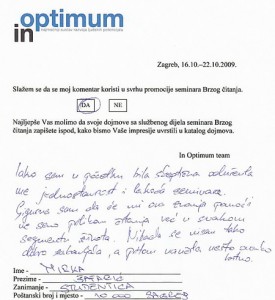 in optimum
Zagreb, 16.10.–22.10.2009.
Slažem se da se moj komentar koristi u svrhu promocije seminara Brzog čitanja.
DA NE
Najljepše Vas molimo da svoje dojmove sa službenog dijela seminara Brzog
čitanja zapišete ispod, kako bismo Vaše impresije uvrstili u katalog dojmova.
In Optimum team
Iako sam u početku bila skeptična oduševila
me jednostavnost i lakoća seminara.
Sigurna sam da će mi ova znanja pomoći
ne samo prilikom čitanja već u svakom
segmentu života. Nikada se nisam tako
dobro zabavljala, a pritom naučila nešto ovako
Ime - MIRKA
Prezime -
Zanimanje - STUDENTICA
Poštanski broj i mjesto - 10 000 ZAGREB